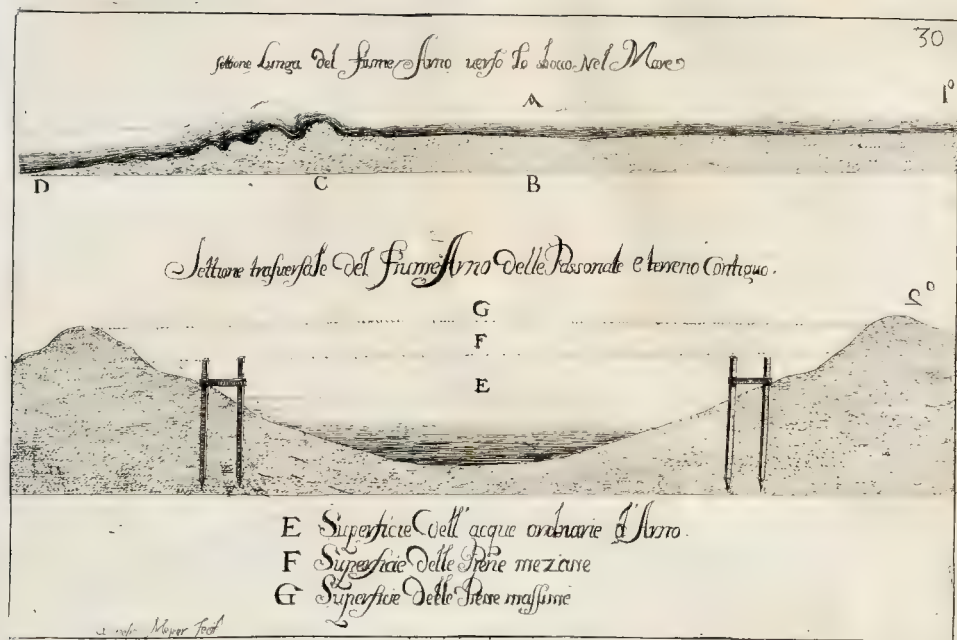 30
Settione Lunga del fiume Arno verso lo sbocco Nel Mare
A
1º
D C B
Settione trasversale del fiume Arno delle Passonate e terreno Contiguo.
G
2º
F
E
E Superficie dell' acque ordinarie d'Arno.
F Superficie delle Piene mezane
G Superficie delle Piene massime
Meyer Fecit